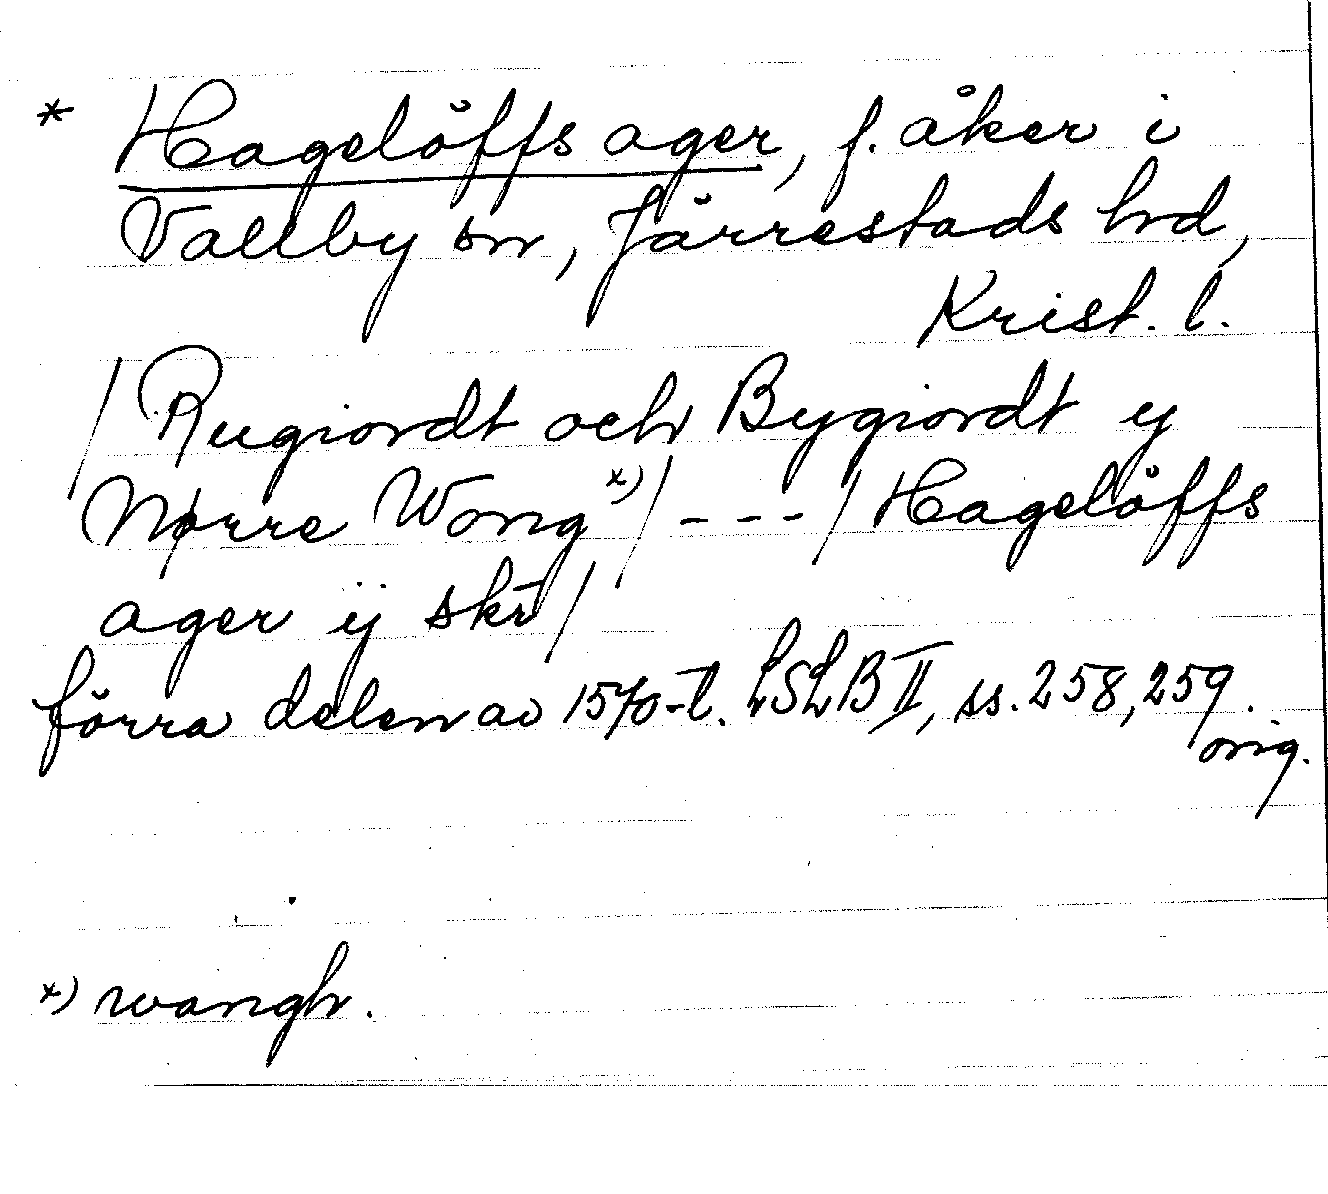 * Hagelöffs ager, f. åker i
Vallby sn, Järrestads hd,
Krist. l.
/ Rugiordt och Bygiordt y
Nørre Wong x) / --- / Hagelöffs
ager ÿ skr̄ /
förra delen av 1570-t. LSLB II, ss. 258, 259.
orig.
x) wangh.